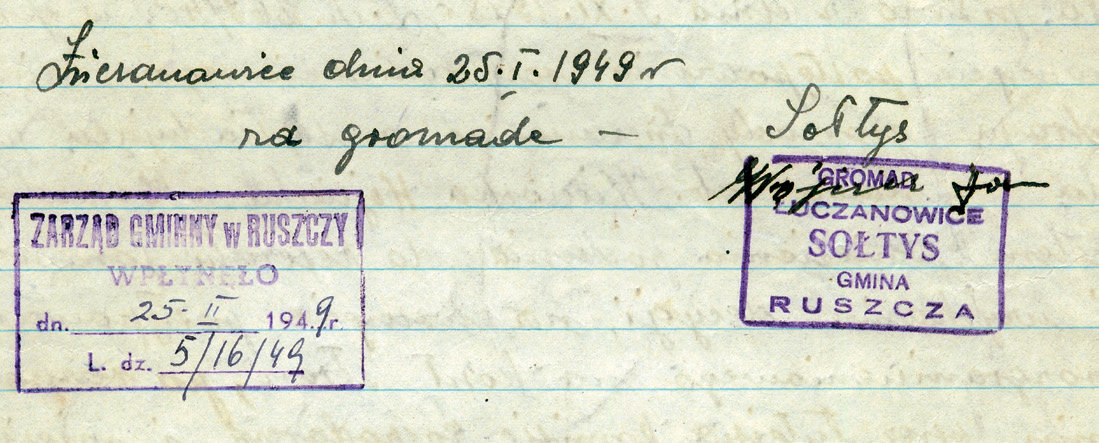 dnia 25.I.1949 r
za gromadę — Sołtys
ZARZĄD GMINNY w RUSZCZY
WPŁYNĘŁO
dn. 25-II 1949.r.
L. dz. 5/16/49
GROMAD
ŁUCZANOWICE
SOŁTYS
GMINA
RUSZCZA